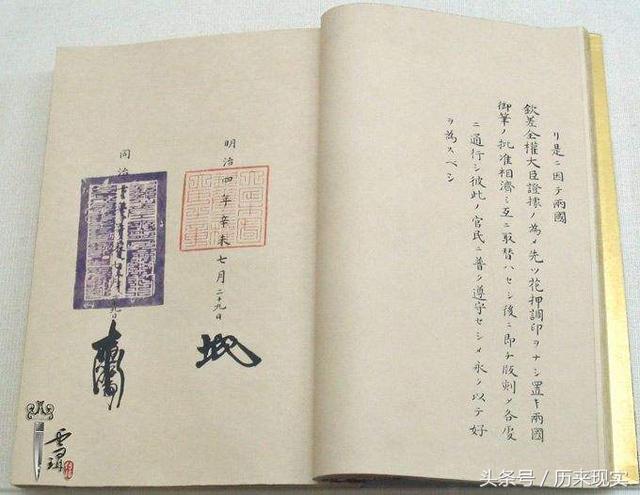 リ是ニ因テ兩國
欽差全權大臣證據ノ為メ先ツ花押調印ヲナシ置キ兩國
御筆ノ批准相濟ミ互ニ取替ハセシ後ニ即チ版刻メ各處
ニ通行シ彼此ノ官民ニ普ク遵守セシメ永ク以テ好
ヲ為スベシ
明治四年辛未七月二十九日
同治
头条号／历来现实